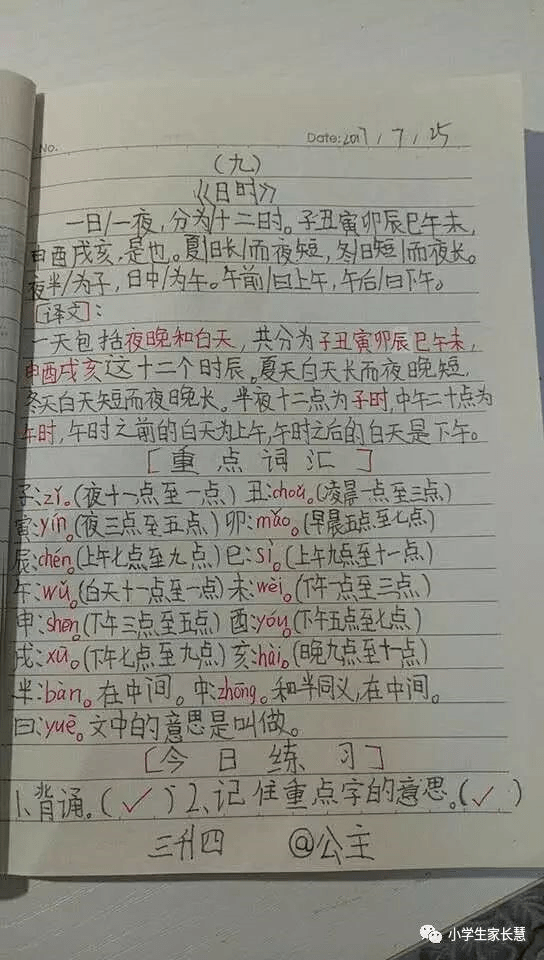 No.
Date: 2017 / 7 / 25
(九)
《日时》
一日/一夜,分为/十二日时。子丑寅卯辰巳午未,
申酉戌亥,是也。夏/日长/而夜短,冬/日短/而夜长。
夜半/为子,日中/为午。午前/曰上午,午后/曰下午。
[译文]:
一天包括夜晚和白天,共分为子丑寅卯辰巳午未,
申酉戌亥这十二个时辰。夏天白天长而夜晚短,
冬天白天短而夜晚长。半夜十二点为子时,中午二十点为
午时,午时之前的白天为上午,午时之后的白天是下午。
[重点词汇]
子:zǐ。(夜十一点至一点) 丑:choǔ。(凌晨一点至三点)
寅:yín。(夜三点至五点) 卯:mǎo。(早晨五点至七点)
辰:chén。(上午七点至九点) 巳:sì。(上午九点至十一点)
午:wǔ。(白天十一点至一点) 未:wèi。(下午一点至三点)
申:shēn。(下午三点至五点) 酉:yóu。(下午五点至七点)
戌:xū。(下午七点至九点) 亥:hài。(晚九点至十一点)
半:bàn。在中间。中:zhōng。和半同义,在中间。
曰:yuē。文中的意思是叫做。
[今日练习]
1、背诵。(✓) 2、记住重点字的意思。(✓)
三升四 @公主
小学生家长慧